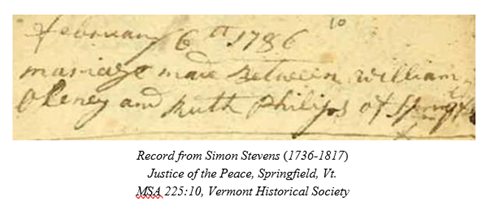 February 6th 1786 10
marriage made Between William
Oleney and Ruth Philips of
Record from Simon Stevens (1736-1817)
Justice of the Peace, Springfield, Vt.
MSA 225:10, Vermont Historical Society